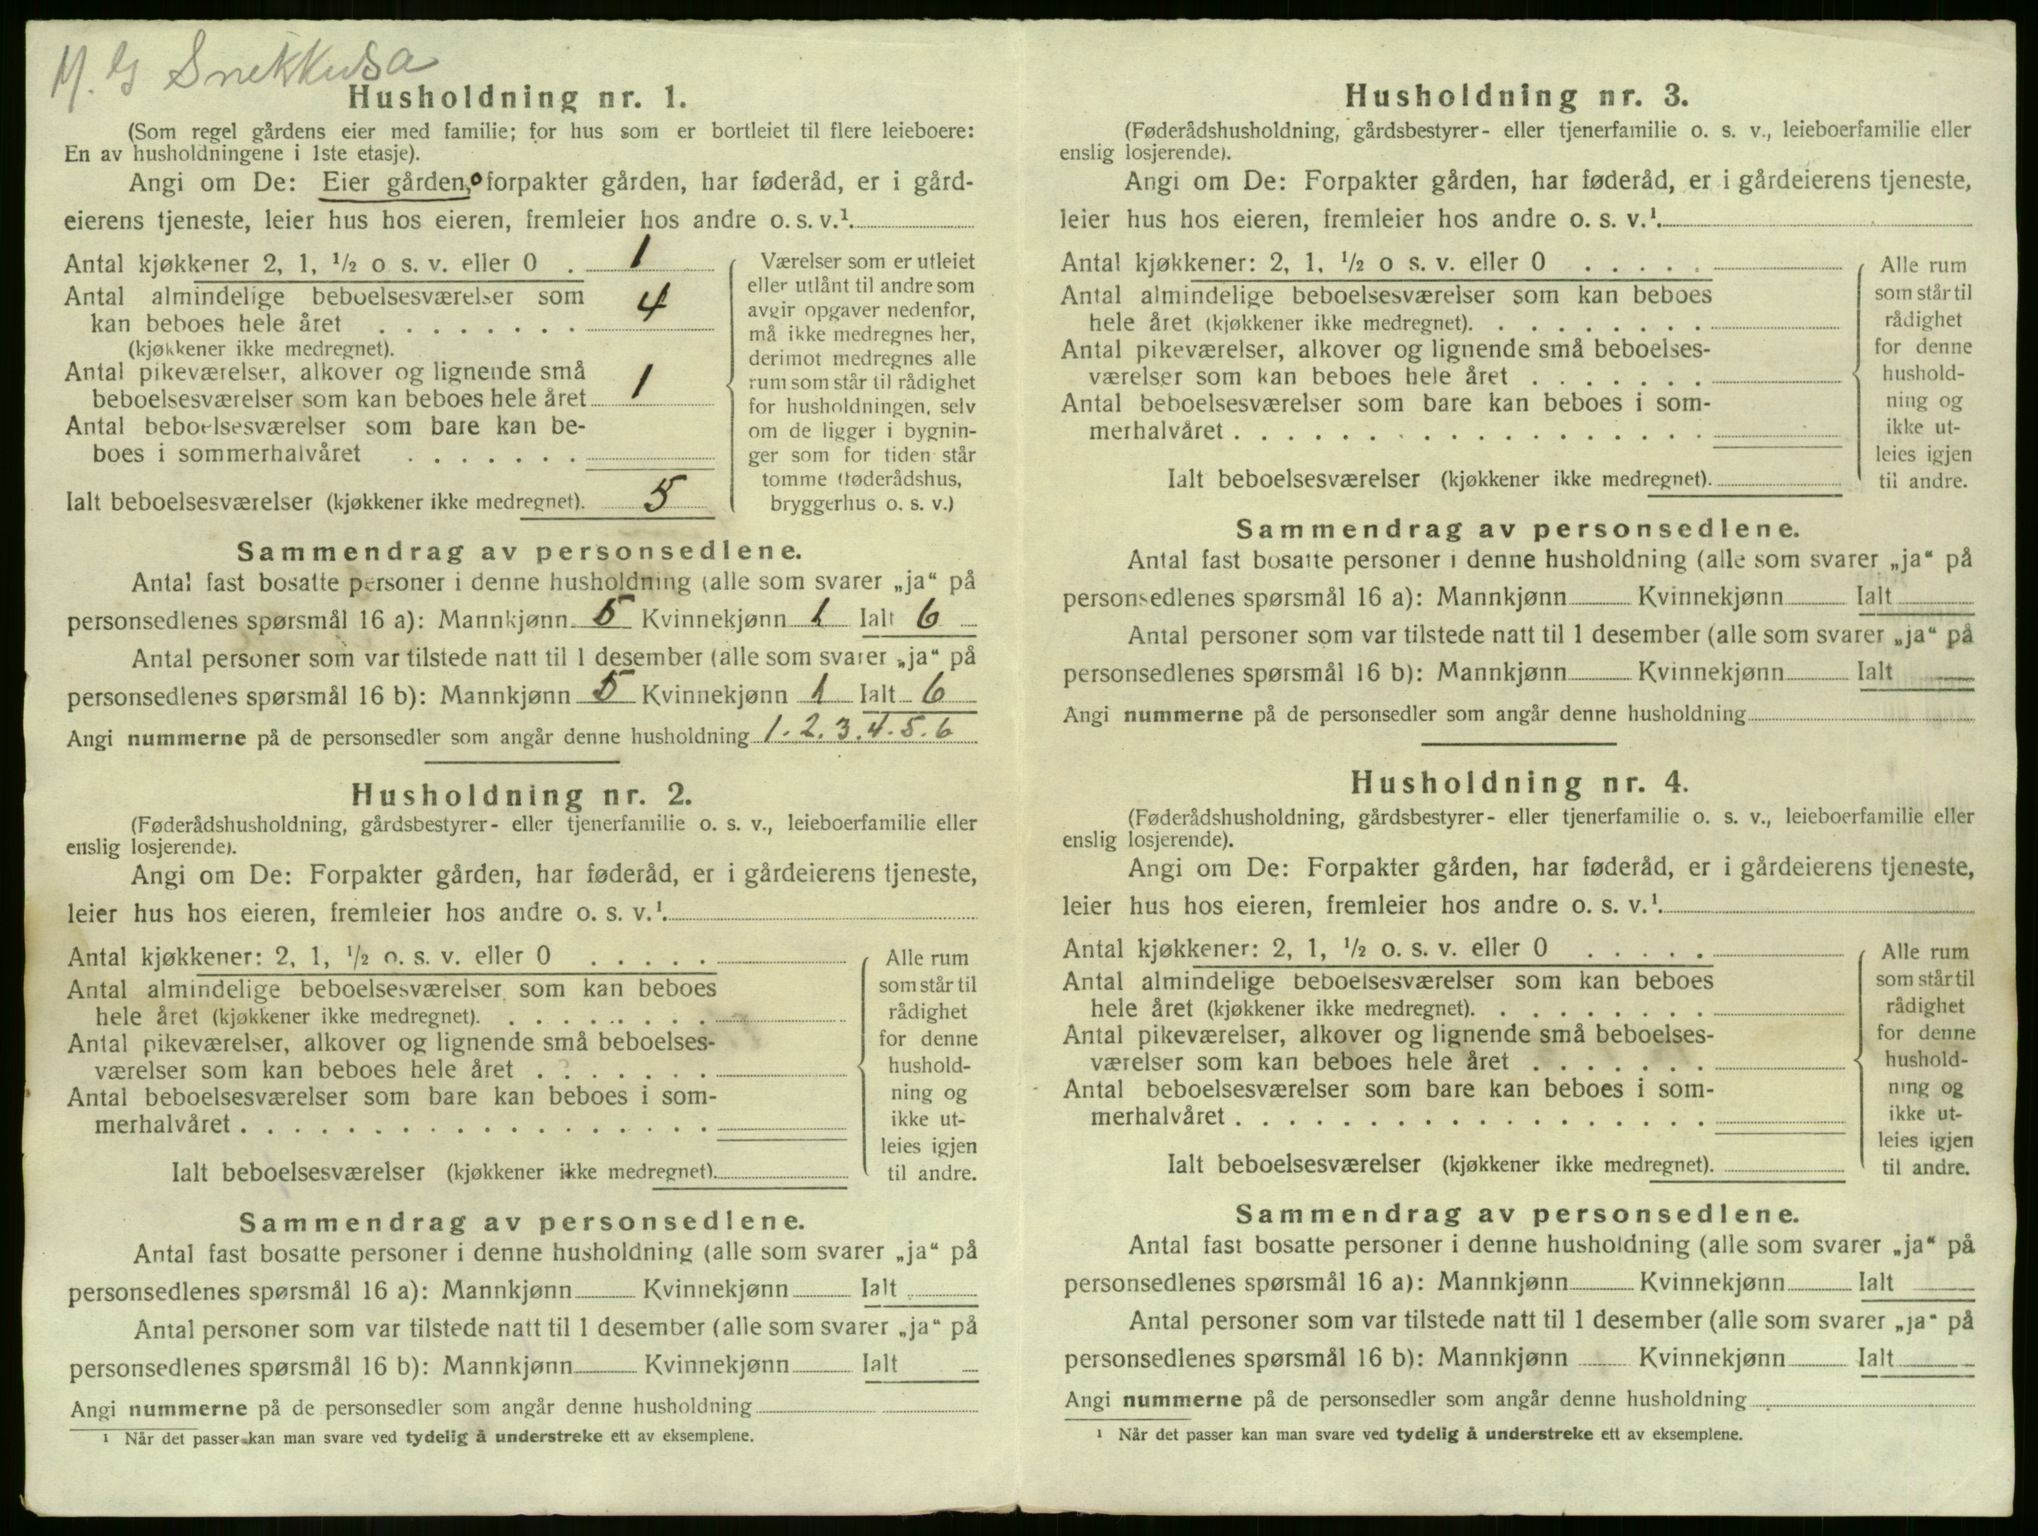 Husholdning nr. 1.
(Som regel gårdens eier med familie; for hus som er bortleiet til flere leieboere:
En av husholdningene i 1ste etasje).
Angi om De: Eier gården, forpakter gården, har føderåd, er i gård-
eierens tjeneste, leier hus hos eieren, fremleier hos andre o. s. v.¹
Antal kjøkkener 2, 1, ½ o s. v. eller 0 . 1
Antal almindelige beboelsesværelser som
kan beboes hele året . . . . . . . . 4
(kjøkkener ikke medregnet).
Antal pikeværelser, alkover og lignende små
beboelsesværelser som kan beboes hele året 1
Antal beboelsesværelser som bare kan be-
boes i sommerhalvåret . . . . . . .
Ialt beboelsesværelser (kjøkkener ikke medregnet). 5
Værelser som er utleiet
eller utlånt til andre som
avgir opgaver nedenfor,
må ikke medregnes her,
derimot medregnes alle
rum som står til rådighet
for husholdningen, selv
om de ligger i bygnin-
ger som for tiden står
tomme (føderådshus,
bryggerhus o. s. v.)
Sammendrag av personsedlene.
Antal fast bosatte personer i denne husholdning (alle som svarer „ja“ på
personsedlenes spørsmål 16 a): Mannkjønn 5 Kvinnekjønn 1 Ialt 6
Antal personer som var tilstede natt til 1 desember (alle som svarer „ja“ på
personsedlenes spørsmål 16 b): Mannkjønn 5 Kvinnekjønn 1 Ialt 6
Angi nummerne på de personsedler som angår denne husholdning 1. 2. 3. 4. 5. 6
Husholdning nr. 2.
(Føderådshusholdning, gårdsbestyrer- eller tjenerfamilie o. s. v., leieboerfamilie eller
enslig losjerende).
Angi om De: Forpakter gården, har føderåd, er i gårdeierens tjeneste,
leier hus hos eieren, fremleier hos andre o. s. v.¹
Antal kjøkkener: 2, 1, ½ o. s. v. eller 0 . . . . .
Antal almindelige beboelsesværelser som kan beboes
hele året (kjøkkener ikke medregnet). . . . . . . . .
Antal pikeværelser, alkover og lignende små beboelses-
værelser som kan beboes hele året . . . . . . .
Antal beboelsesværelser som bare kan beboes i som-
merhalvåret . . . . . . . . . . . . . . . . . .
Ialt beboelsesværelser (kjøkkener ikke medregnet).
Alle rum
som står til
rådighet
for denne
hushold-
ning og
ikke ut-
leies igjen
til andre.
Sammendrag av personsedlene.
Antal fast bosatte personer i denne husholdning (alle som svarer „ja“ på
personsedlenes spørsmål 16 a): Mannkjønn Kvinnekjønn Ialt
Antal personer som var tilstede natt til 1 desember (alle som svarer „ja“ på
personsedlenes spørsmål 16 b): Mannkjønn Kvinnekjønn Ialt
Angi nummerne på de personsedler som angår denne husholdning
¹ Når det passer kan man svare ved tydelig å understreke ett av eksemplene.
Husholdning nr. 3.
(Føderådshusholdning, gårdsbestyrer- eller tjenerfamilie o. s. v., leieboerfamilie eller
enslig losjerende).
Angi om De: Forpakter gården, har føderåd, er i gårdeierens tjeneste,
leier hus hos eieren, fremleier hos andre o. s. v.¹
Antal kjøkkener: 2, 1, ½ o s. v. eller 0 . . . . .
Antal almindelige beboelsesværelser som kan beboes
hele året (kjøkkener ikke medregnet). . . . . . . . .
Antal pikeværelser, alkover og lignende små beboelses-
værelser som kan beboes hele året . . . . . . .
Antal beboelsesværelser som bare kan beboes i som-
merhalvåret . . . . . . . . . . . . . . . . . .
Ialt beboelsesværelser (kjøkkener ikke medregnet).
Alle rum
som står til
rådighet
for denne
hushold-
ning og
ikke ut-
leies igjen
til andre.
Sammendrag av personsedlene.
Antal fast bosatte personer i denne husholdning (alle som svarer „ja“ på
personsedlenes spørsmål 16 a): Mannkjønn Kvinnekjønn Ialt
Antal personer som var tilstede natt til 1 desember (alle som svarer „ja“ på
personsedlenes spørsmål 16 b): Mannkjønn Kvinnekjønn Ialt
Angi nummerne på de personsedler som angår denne husholdning
Husholdning nr. 4.
(Føderådshusholdning, gårdsbestyrer- eller tjenerfamilie o. s. v., leieboerfamilie eller
enslig losjerende).
Angi om De: Forpakter gården, har føderåd, er i gårdeierens tjeneste,
leier hus hos eieren, fremleier hos andre o. s. v.¹
Antal kjøkkener: 2, 1, ½ o. s. v. eller 0 . . . . .
Antal almindelige beboelsesværelser som kan beboes
hele året (kjøkkener ikke medregnet). . . . . . . . .
Antal pikeværelser, alkover og lignende små beboelses-
værelser som kan beboes hele året . . . . . . .
Antal beboelsesværelser som bare kan beboes i som-
merhalvåret . . . . . . . . . . . . . . . . . .
Ialt beboelsesværelser (kjøkkener ikke medregnet).
Alle rum
som står til
rådighet
for denne
hushold-
ning og
ikke ut-
leies igjen
til andre.
Sammendrag av personsedlene.
Antal fast bosatte personer i denne husholdning (alle som svarer „ja“ på
personsedlenes spørsmål 16 a): Mannkjønn Kvinnekjønn Ialt
Antal personer som var tilstede natt til 1 desember (alle som svarer „ja“ på
personsedlenes spørsmål 16 b): Mannkjønn Kvinnekjønn Ialt
Angi nummerne på de personsedler som angår denne husholdning
¹ Når det passer kan man svare ved tydelig å understreke ett av eksemplene.